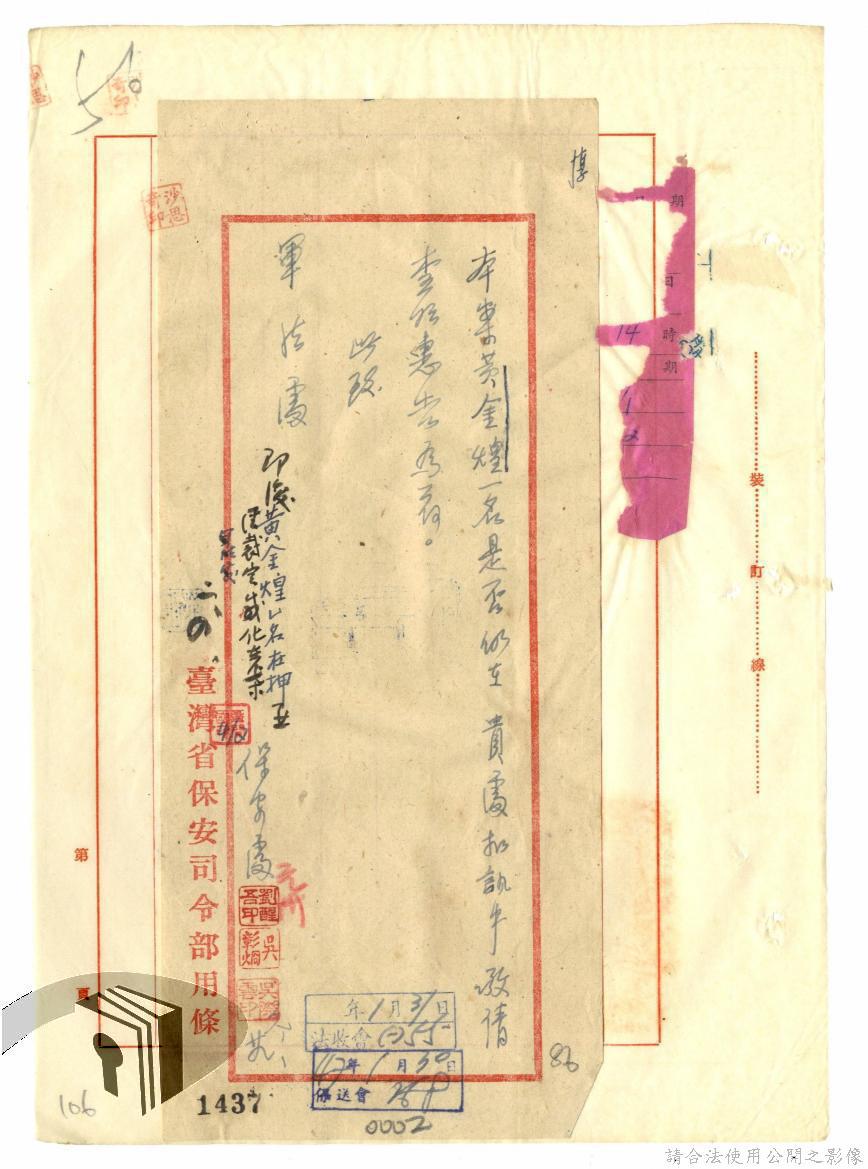 本案黃金煌一名是否仍在 貴處扣訊中敬請
查照惠告為荷。
此致
軍法處
保安處
即復黃金煌乙名在押並
經裁定感化在案
臺灣省保安司令部用條
沙思奇印
劉醒吾印
吳彰炯
年1月31日
法收會
42年1月30日
保送會
1437
0002
86
106
期
日
14時
期
裝
訂
線
第
頁
請合法使用公開之影像